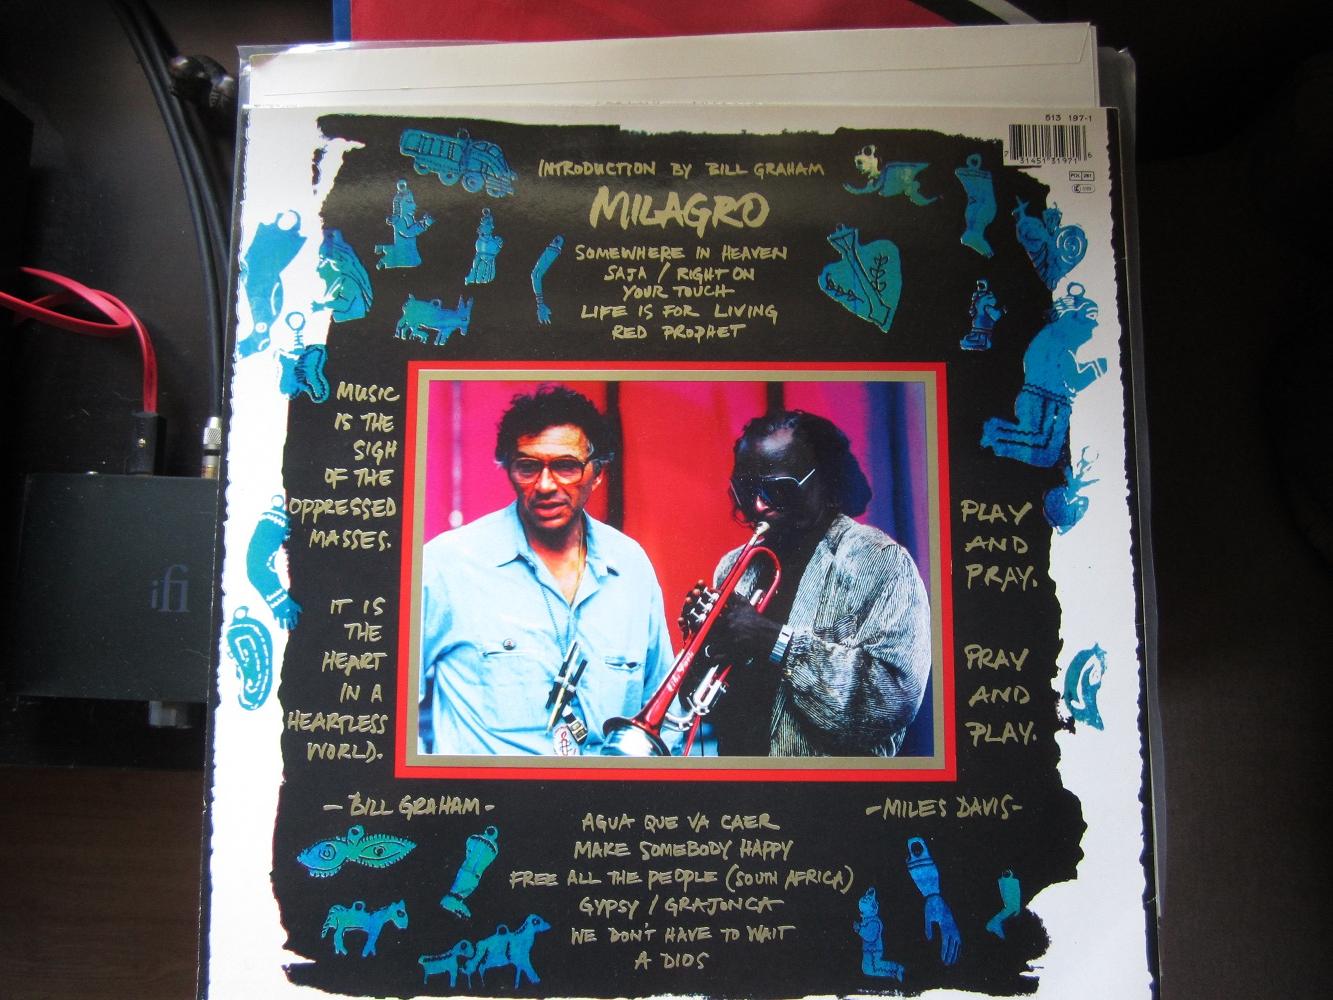 513 197-1
7 31451 31971 6
INTRODUCTION BY BILL GRAHAM
MILAGRO
SOMEWHERE IN HEAVEN
SAJA / RIGHT ON
YOUR TOUCH
LIFE IS FOR LIVING
RED PROPHET
MUSIC
IS THE
SIGH
OF THE
OPPRESSED
MASSES.
IT IS
THE
HEART
IN A
HEARTLESS
WORLD.
-BILL GRAHAM-
PLAY
AND
PRAY.
PRAY
AND
PLAY.
-MILES DAVIS-
AGUA QUE VA CAER
MAKE SOMEBODY HAPPY
FREE ALL THE PEOPLE (SOUTH AFRICA)
GYPSY / GRAJONCA
WE DON'T HAVE TO WAIT
A DIOS
ifi